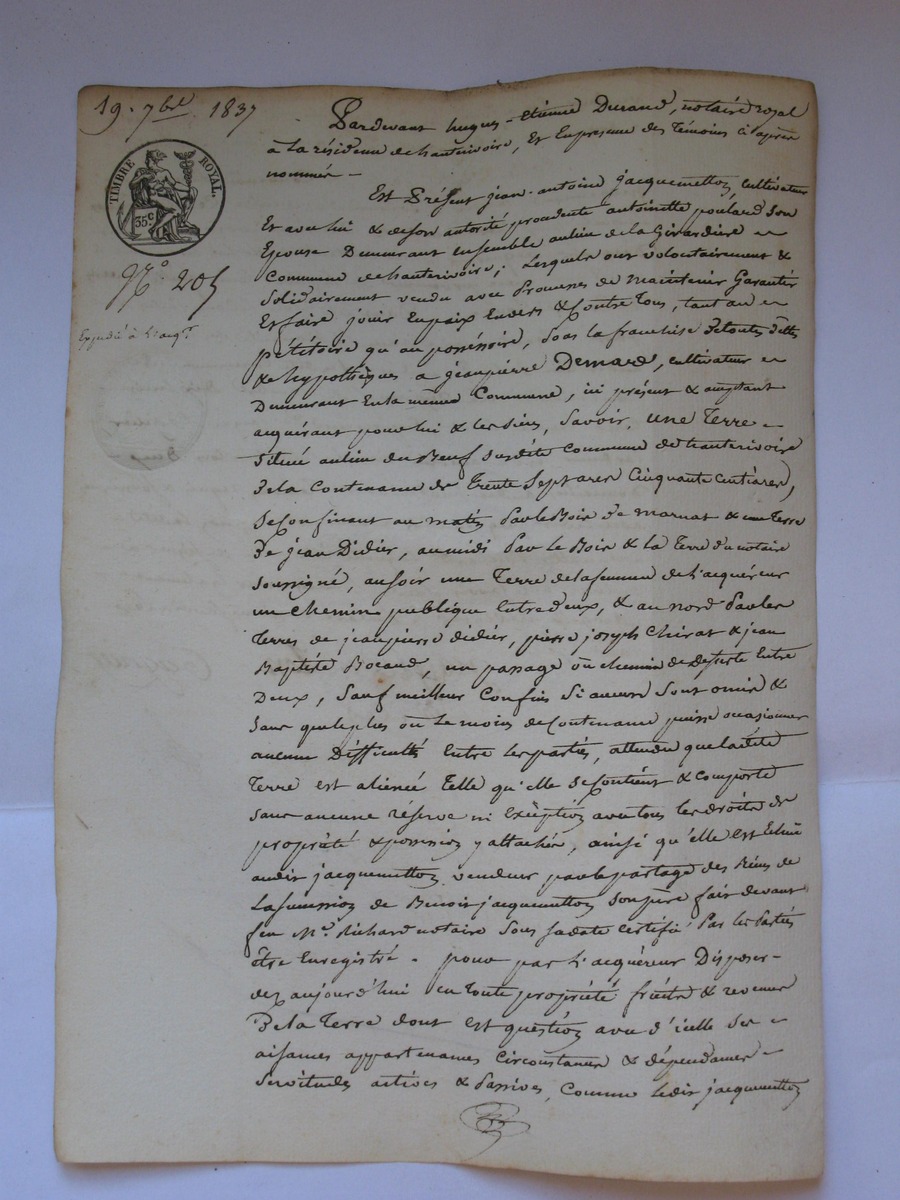 19. 7bre 1837
TIMBRE ROYAL.
35 c
N° 205
Expédié à l'acqr
Pardevant hugues-Etienne Durand, notaire royal
à la résidence de hauterivoire, Et En presence des Témoins ci après
nommés -
Est Présent jean-antoine jacquemetton, cultivateur
Et avec lui & de son autorité procedante antoinette poulard son
Epouse Demeurant ensemble au lieu de la Girardière
Commune de hauterivoire; Lesquels ont volontairement &
Solidairement vendu avec Promesses de maintenir Garantir
Et faire jouir En paix Envers & Contre Tous, tant au
pétitoire qu'au possessoire, sous la franchise de toutes dettes
& d'hypothèques a jeanpierre Demard, cultivateur
Demeurant En la même Commune, ici présent & acceptant
acquérant pour lui & les siens, Savoir, une Terre
Située au lieu du Bœuf susdite Commune de hauterivoire
De la Contenance de Trente Sept ares Cinquante Centiares,
Se Confinant au matin Par le Bois de marnat & une Terre
De jean Didier, au midi Par le Bois & la Terre du notaire
soussigné, au soir une Terre de la femme de l'acquéreur
un Chemin publique Entredeux, & au nord Par les
Terres de jeanpierre didier, pierre joseph Chirat & jean
Baptiste Bocaud, un passage ou chemin de desserte Entre
Deux, Sauf meilleurs Confins Si aucuns sont omis &
Sans que le plus ou Le moins de Contenance puisse occasionner
aucune Difficultés Entre les parties, attendu que ladite
Terre est alienée Telle qu'elle se Contient & Comporte
Sans aucune réserve ni Exception avec tous les droits de
propriété & possession y attachés, ainsi qu'elle est Echue
audit jacquemetton vendeur par le partage des Biens de
La succession de Benoit jacquemetton son père fait devant
feu Me. Richard notaire sous sa date certifié Par les Parties
être Enregistré. - pour par L'acquéreur Disposer
dez aujourd'hui en toute propriété fruits & revenus
De la Terre dont est question avec d'icelle ses
aisances appartenances Circonstances & dépendances
Servitudes actives & Passives, Comme Ledit jacquemetton